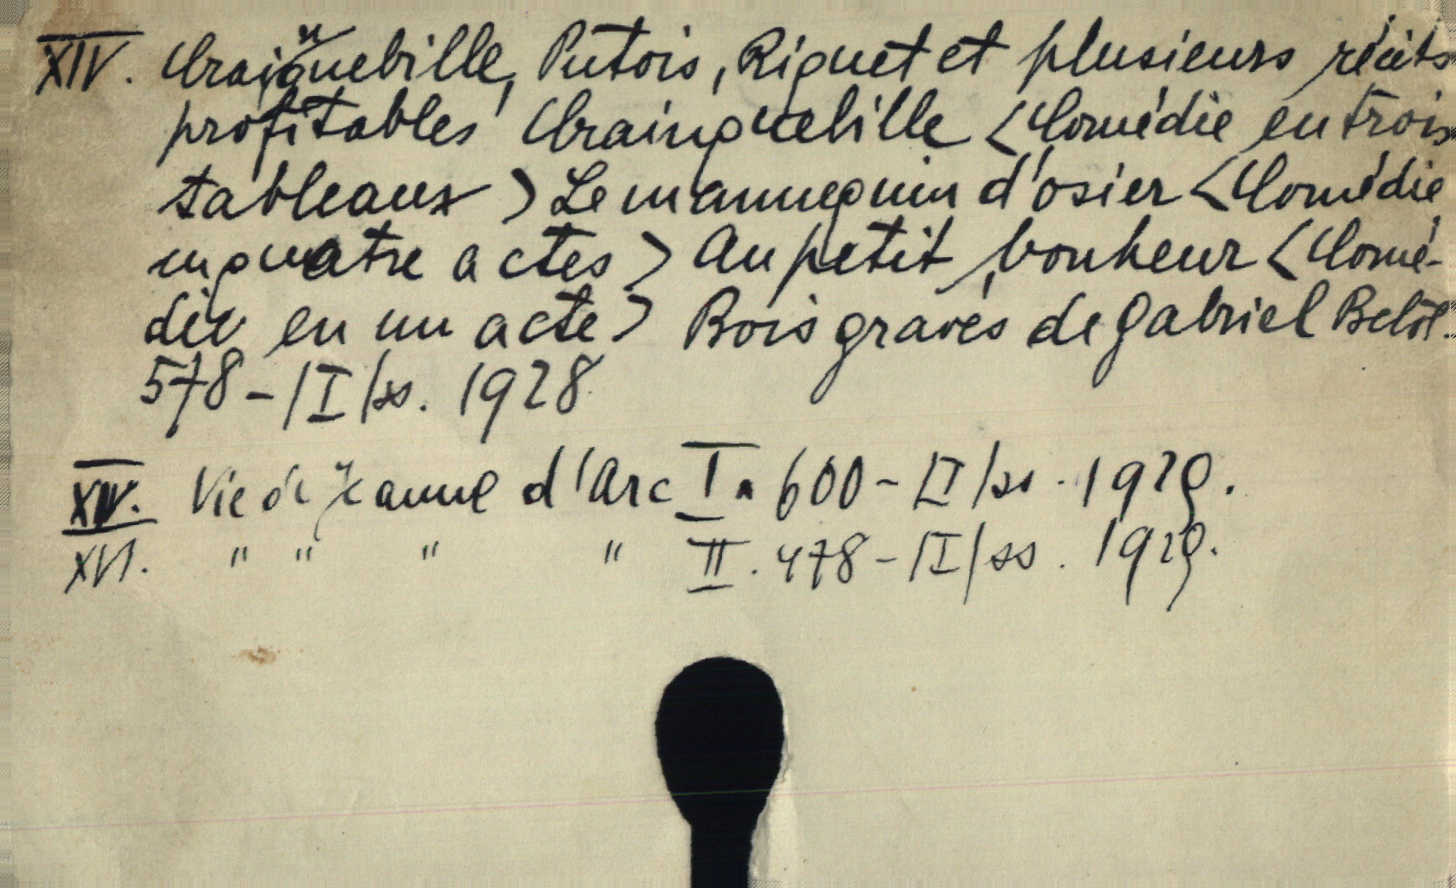 XIV. Craiⁿquebille, Putois, Riquet et plusieurs récits
profitables Crainquebille <Comédie en trois
tableaux> Le mannequin d'osier <Comédie
en quatre actes> Au petit bonheur <Comé-
die en un acte> Bois gravés de Gabriel Belot.
578-II/ss. 1928
XV. Vie de Jeanne d'Arc I. 600-II/ss. 1929.
XVI. " " " " II. 478-II/ss. 1929.